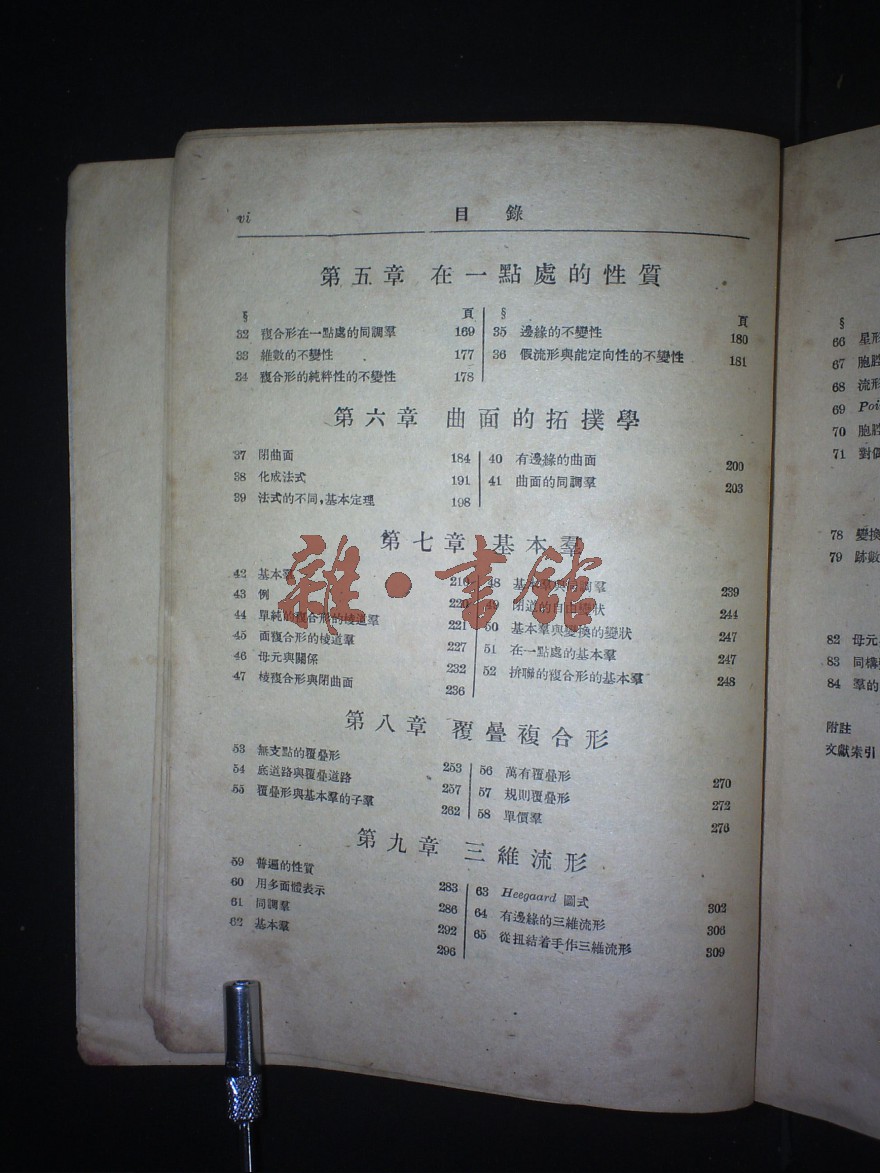 vi
目 錄
第五章 在一點處的性質
§ 頁
32 複合形在一點處的同調羣 169
33 維數的不變性 177
34 複合形的純粹性的不變性 178
§ 頁
35 邊緣的不變性 180
36 假流形與能定向性的不變性 181
第六章 曲面的拓撲學
37 閉曲面 184
38 化成法式 191
39 法式的不同，基本定理 198
40 有邊緣的曲面 200
41 曲面的同調羣 203
第七章 基本羣
42 基本羣 216
43 例 220
44 單純的複合形的棱道羣 221
45 面複合形的棱道羣 227
46 母元與關係 232
47 棱複合形與閉曲面 236
48 基本羣與同調羣 239
49 閉道的自由變狀 244
50 基本羣與變換的變狀 247
51 在一點處的基本羣 247
52 拚聯的複合形的基本羣 248
第八章 覆疊複合形
53 無支點的覆疊形 253
54 底道路與覆疊道路 257
55 覆疊形與基本羣的子羣 262
56 萬有覆疊形 270
57 規則覆疊形 272
58 單價羣 276
第九章 三維流形
59 普遍的性質 283
60 用多面體表示 286
61 同調羣 292
62 基本羣 296
63 Heegaard 圖式 302
64 有邊緣的三維流形 306
65 從扭結着手作三維流形 309
§
66 星形
67 胞腔
68 流形
69 Poi
70 胞腔
71 對偶
78 變換
79 跡數
82 母元
83 同構
84 羣的
附註
文獻索引
雜·書館